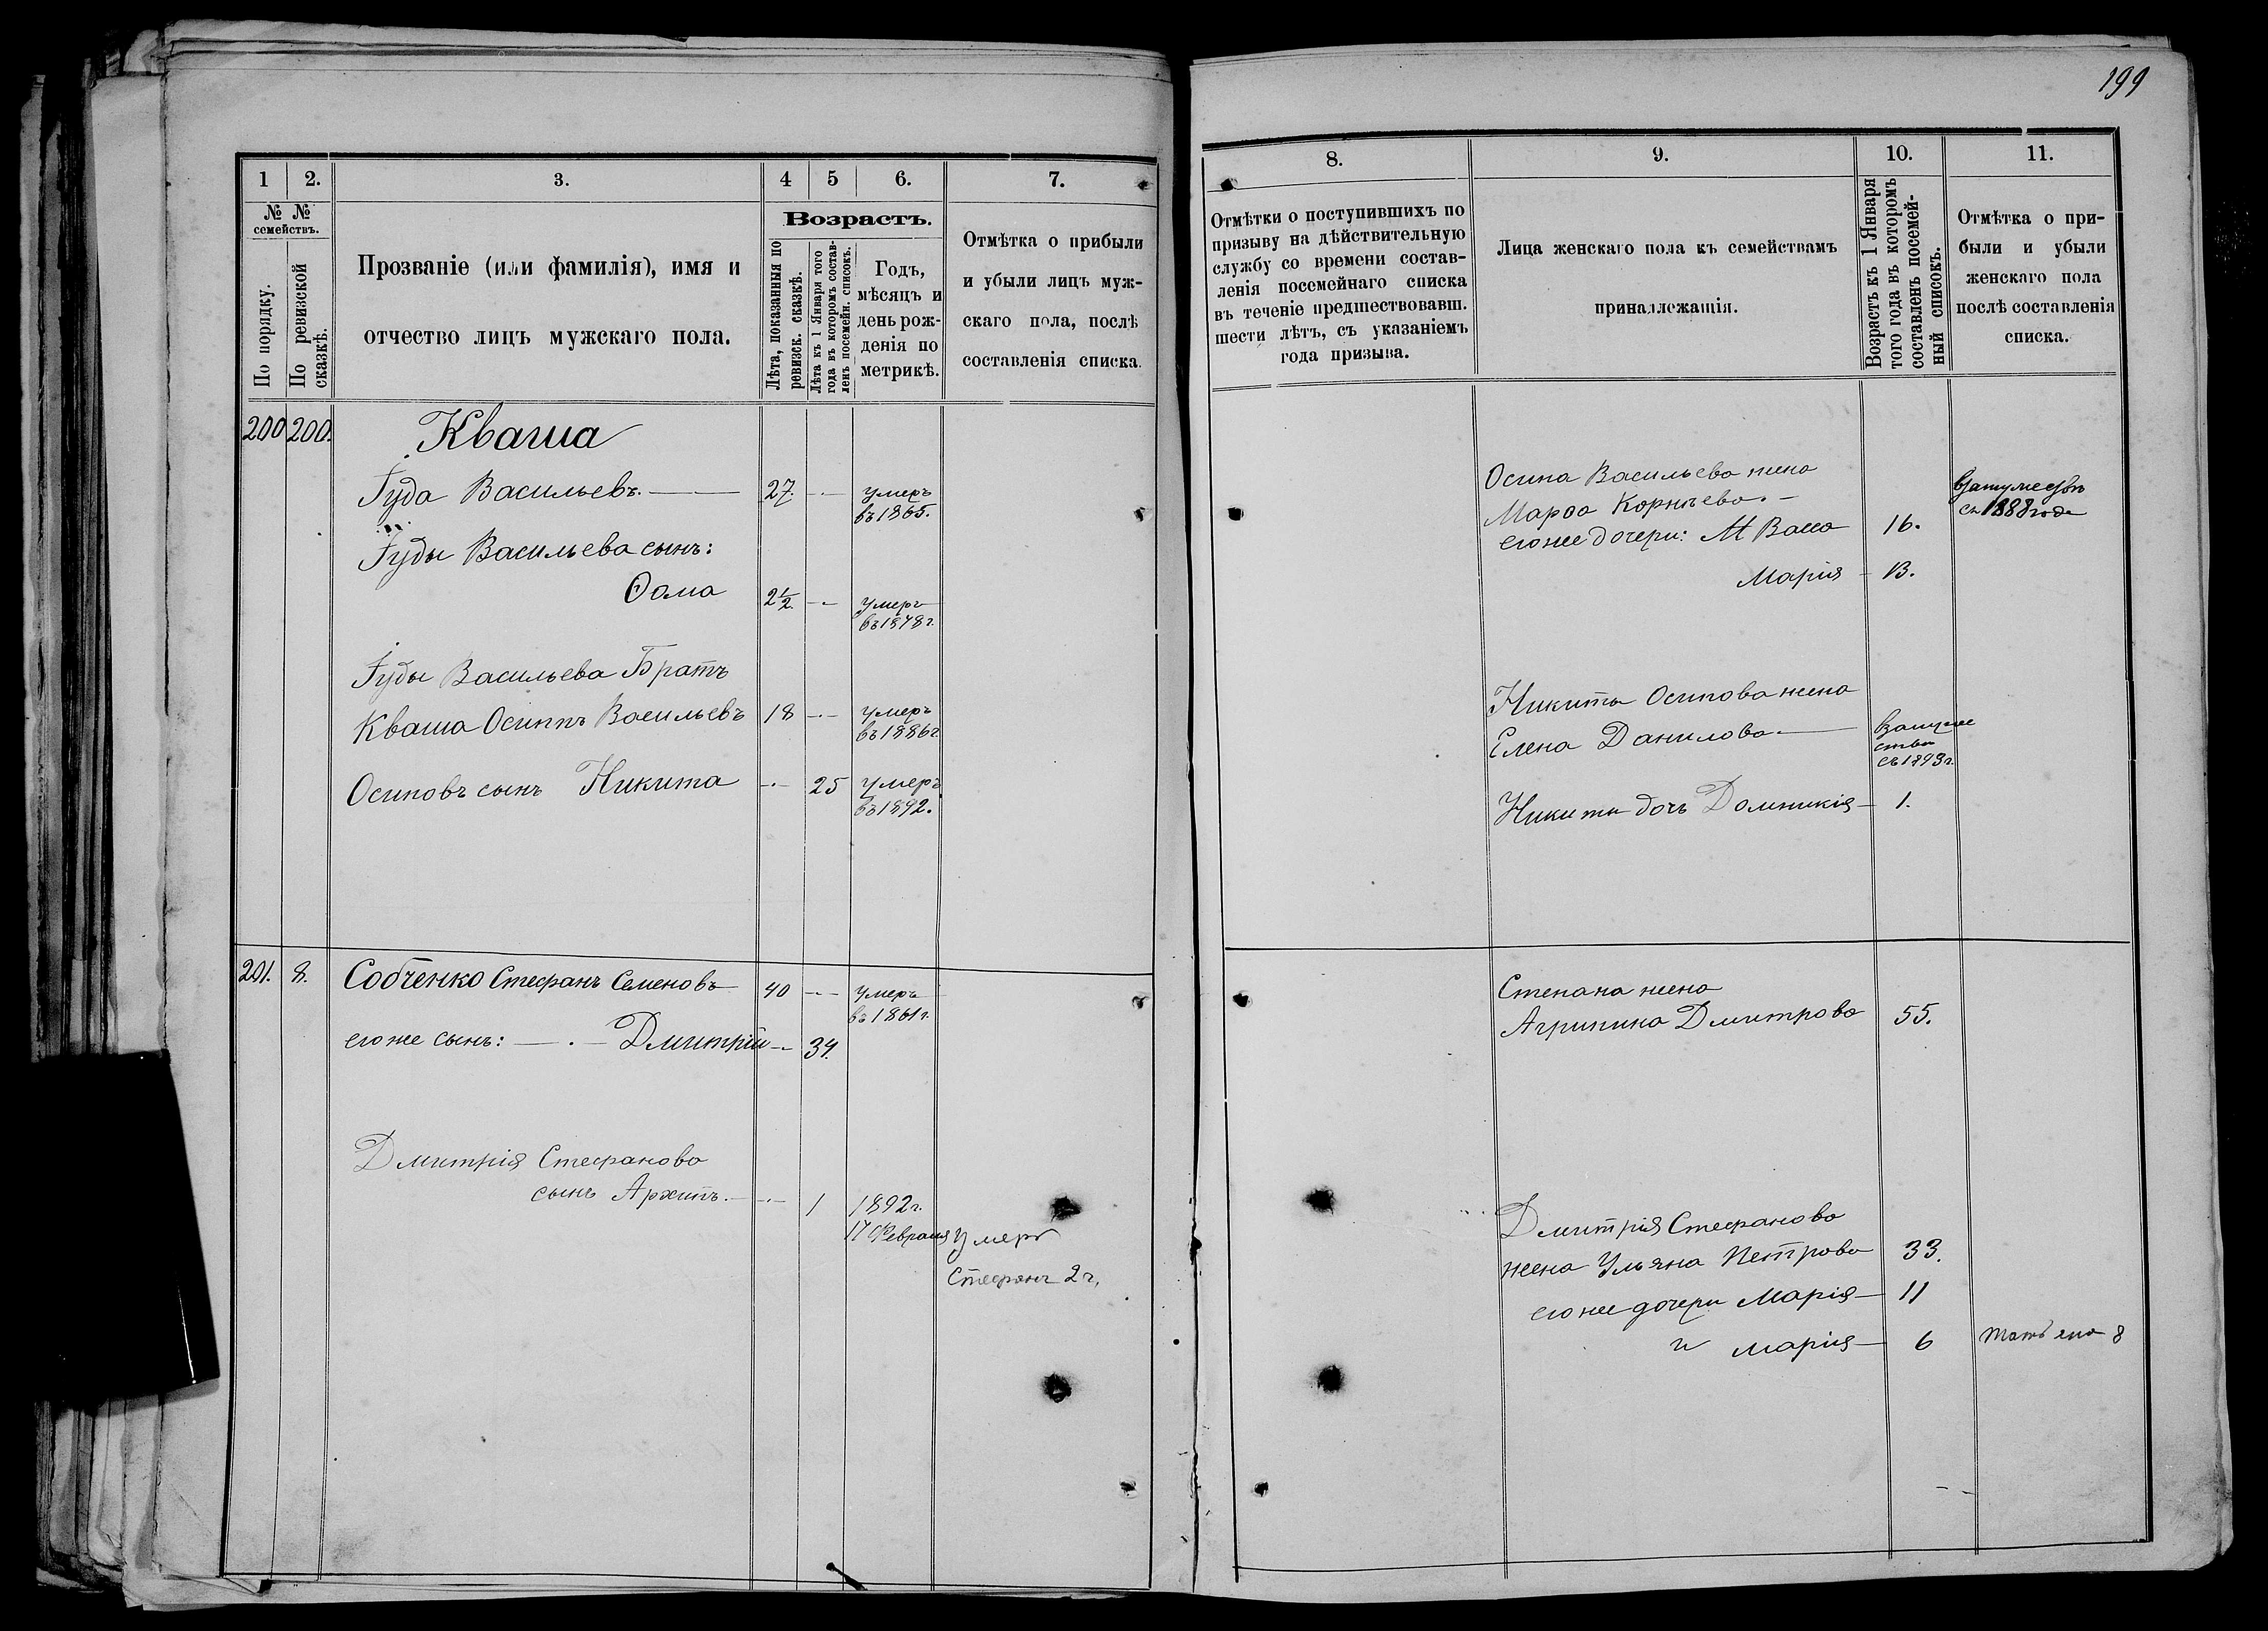 199
1 2. 3. 4 5 6. 7.
№ № семействъ.
По порядку.
По ревизской сказкѣ.
Прозваніе (или фамилія), имя и
отчество лицъ мужскаго пола.
Возрастъ.
Лѣта, показанныя по
ревизск. сказкѣ.
Лѣта къ 1 Января того
года въ которомъ состав-
ленъ посемейн. списокъ.
Годъ,
мѣсяцъ и
день рож-
денія по
метрикѣ.
Отмѣтка о прибыли
и убыли лицъ муж-
скаго пола, послѣ
составленія списка.
200 200. Кваша
Іуда Васильевъ. 27. умеръ
въ 1865.
Іуды Васильева сынъ:
Ѳома 2½ умеръ
въ 1878 г.
Іуды Васильева Братъ
Кваша Осипъ Васильевъ 18 умеръ
въ 1886 г.
Осиповъ сынъ Никита 25 умеръ
въ 1892.
201. 8. Собченко Стефанъ Семеновъ 40 умеръ
въ 1861 г.
его же сынъ: Дмитрій 34.
Дмитрія Стефанова
сынъ Архипъ. 1 1892 г.
17 Февраля умеръ
Стефанъ 2 г.
8. 9. 10. 11.
Отмѣтки о поступившихъ по
призыву на дѣйствительную
службу со времени состав-
ленія посемейнаго списка
въ теченіе предшествовавш.
шести лѣтъ, съ указаніемъ
года призыва.
Лица женскаго пола къ семействамъ
принадлежащія.
Возрастъ къ 1 Января
того года въ которомъ
составленъ посемей-
ный списокъ.
Отмѣтка о при-
были и убыли
женскаго пола
послѣ составленія
списка.
Осипа Васильева жена
Марѳа Корнѣева.
его же дочери: Васса 16.
съ 1888 года
Марія 13.
Никиты Осипова жена
Елена Данилова
съ 1893 г.
Никиты дочь Домникія 1.
Степана жена
Агрипина Дмитрова 55.
Дмитрія Стефанова
жена Ульяна Петрова 33.
его же дочери Марія 11
и Марія 6 Татьяна 8